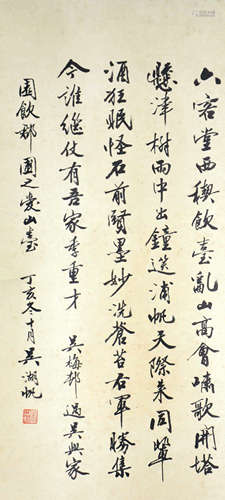 六客堂西禊飲臺亂山高會嘯歌開塔
懸津樹雨中出鐘送浦帆天際來同輩
酒狂眠怪石前賢墨妙洗蒼苔右軍勝集
今誰繼仗有吾家季重才 吳梅邨過吳興家
園飲郡圃之愛山臺 丁亥冬十月吳湖帆